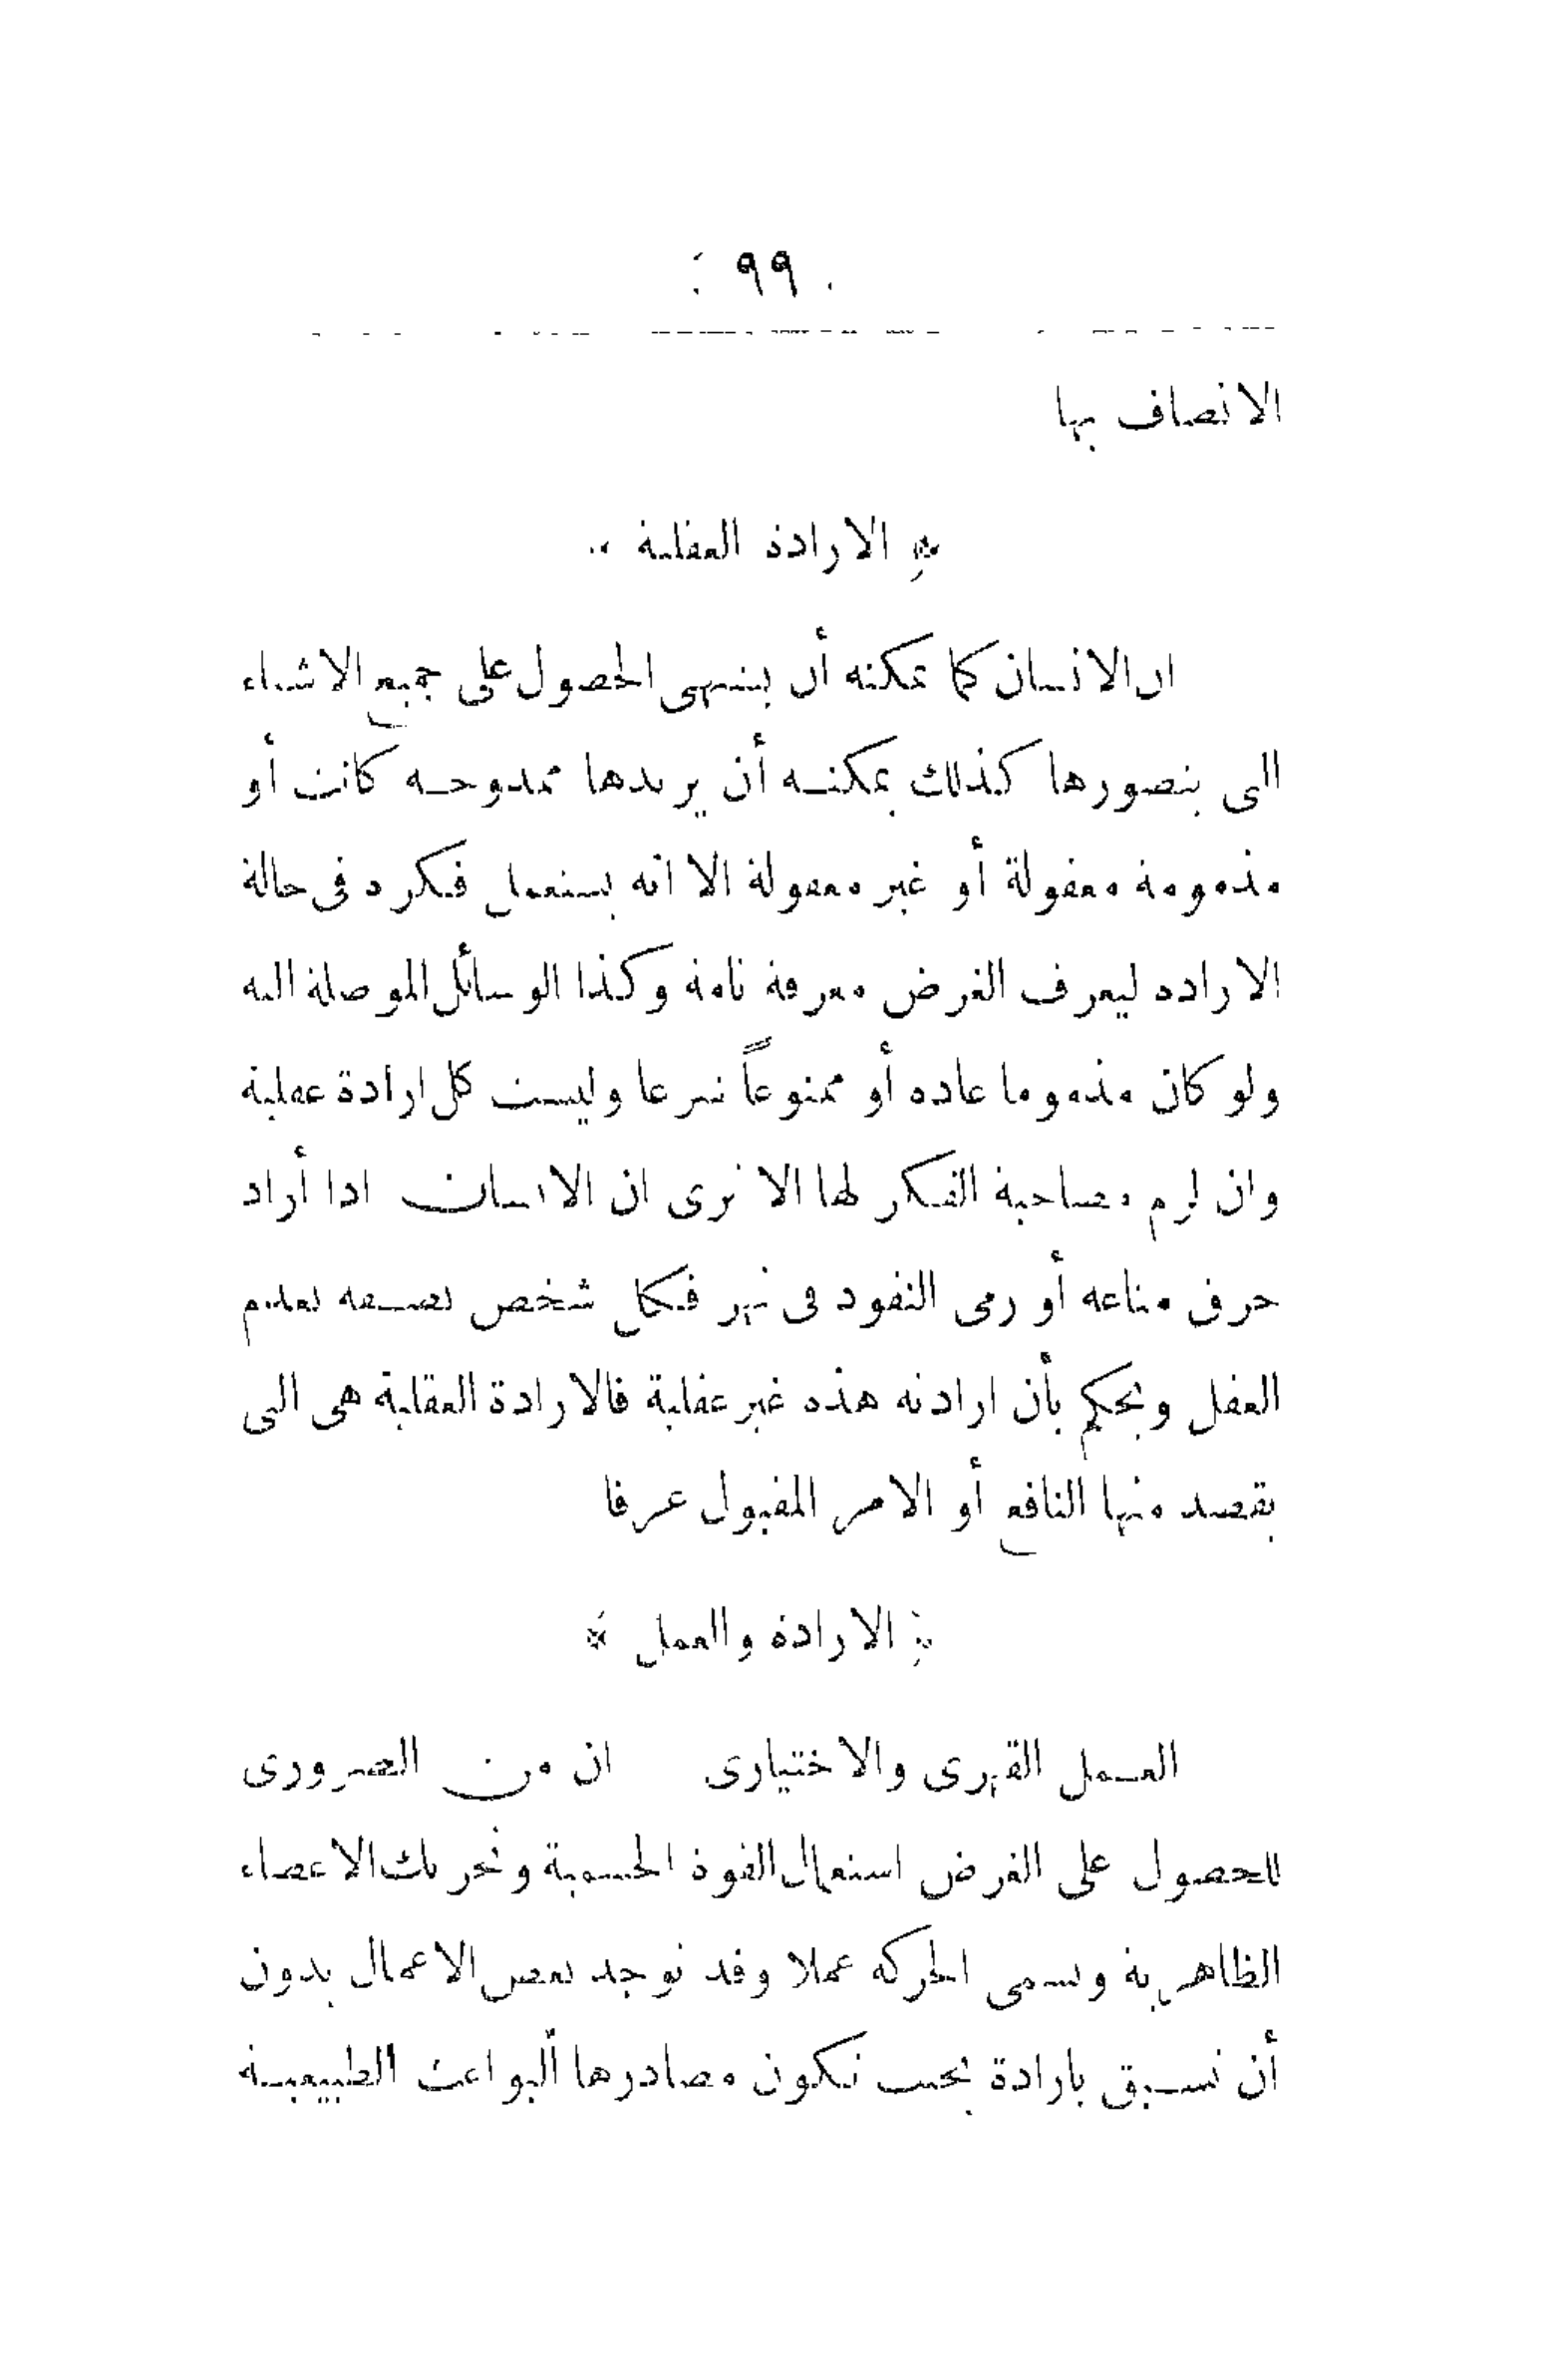 ٩٩
الاتصاف بها
﴿ الارادة العقلية ﴾
ان الانسان كما يمكنه أن يشتهى الحصول على جميع الاشياء
التى يتصورها كذلك يمكنه أن يريدها ممدوحة كانت أو
مذمومة معقولة أو غير معقولة الا انه يستعمل فكره فى حالة
الاراده ليعرف الغرض معرفة تامة وكذا الوسائل الموصلة اليه
ولو كان مذموما عاده أو ممنوعاً شرعا وليست كل ارادة عقلية
وان لزم مصاحبة الفكر لها الا ترى ان الانسان اذا أراد
حرق متاعه أو رمى النقود فى نهر فكل شخص يصفه بعديم
العقل ويحكم بأن ارادته هذه غير عقلية فالارادة العقلية هى التى
يقصد منها النافع أو الامر المقبول عرفا
﴿ الارادة والعمل ﴾
العمل القهرى والاختيارى ان من الضرورى
للحصول على الغرض استعمال القوة الجسمية وتحريك الاعضاء
الظاهرية وتسمى الحركة عملا وقد توجد بعض الاعمال بدون
أن تسبق بارادة بحيث تكون مصادرها البواعث الطبيعية